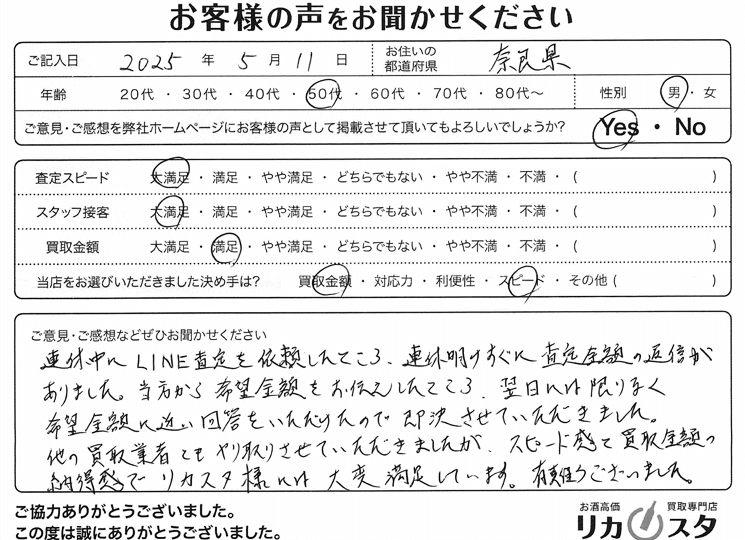 お客様の声をお聞かせください
ご記入日 2025 年 5 月 11 日 お住いの都道府県 奈良県
年齢 20代 ・ 30代 ・ 40代 ・ 50代 ・ 60代 ・ 70代 ・ 80代～ 性別 男 ・ 女
ご意見・ご感想を弊社ホームページにお客様の声として掲載させて頂いてもよろしいでしょうか? Yes ・ No
査定スピード 大満足 ・ 満足 ・ やや満足 ・ どちらでもない ・ やや不満 ・ 不満 ・ ( )
スタッフ接客 大満足 ・ 満足 ・ やや満足 ・ どちらでもない ・ やや不満 ・ 不満 ・ ( )
買取金額 大満足 ・ 満足 ・ やや満足 ・ どちらでもない ・ やや不満 ・ 不満 ・ ( )
当店をお選びいただきました決め手は? 買取金額 ・ 対応力 ・ 利便性 ・ スピード ・ その他 ( )
ご意見・ご感想などぜひお聞かせください
連休中にLINE査定を依頼したところ、連休明けすぐに査定金額の返信が
ありました。当方から希望金額をお伝えしたところ、翌日には限りなく
希望金額に近い回答をいただけたので即決させていただきました。
他の買取業者ともやり取りさせていただきましたが、スピード感と買取金額の
納得感でリカスタ様には大変満足しています。有難うございました。
ご協力ありがとうございました。
この度は誠にありがとうございます。
お酒高価 買取専門店
リカスタ